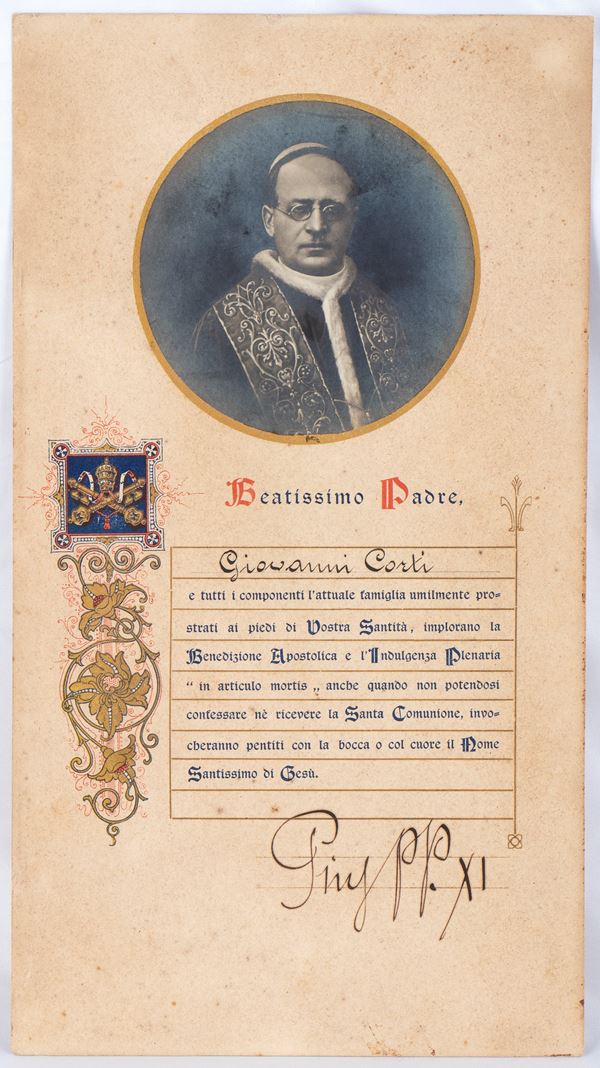 Beatissimo Padre,
Giovanni Corti
e tutti i componenti l'attuale famiglia umilmente pro-
strati ai piedi di Vostra Santità, implorano la
Benedizione Apostolica e l'Indulgenza Plenaria
“ in articulo mortis „ anche quando non potendosi
confessare nè ricevere la Santa Comunione, invo-
cheranno pentiti con la bocca o col cuore il Nome
Santissimo di Gesù.
Pius PP. XI